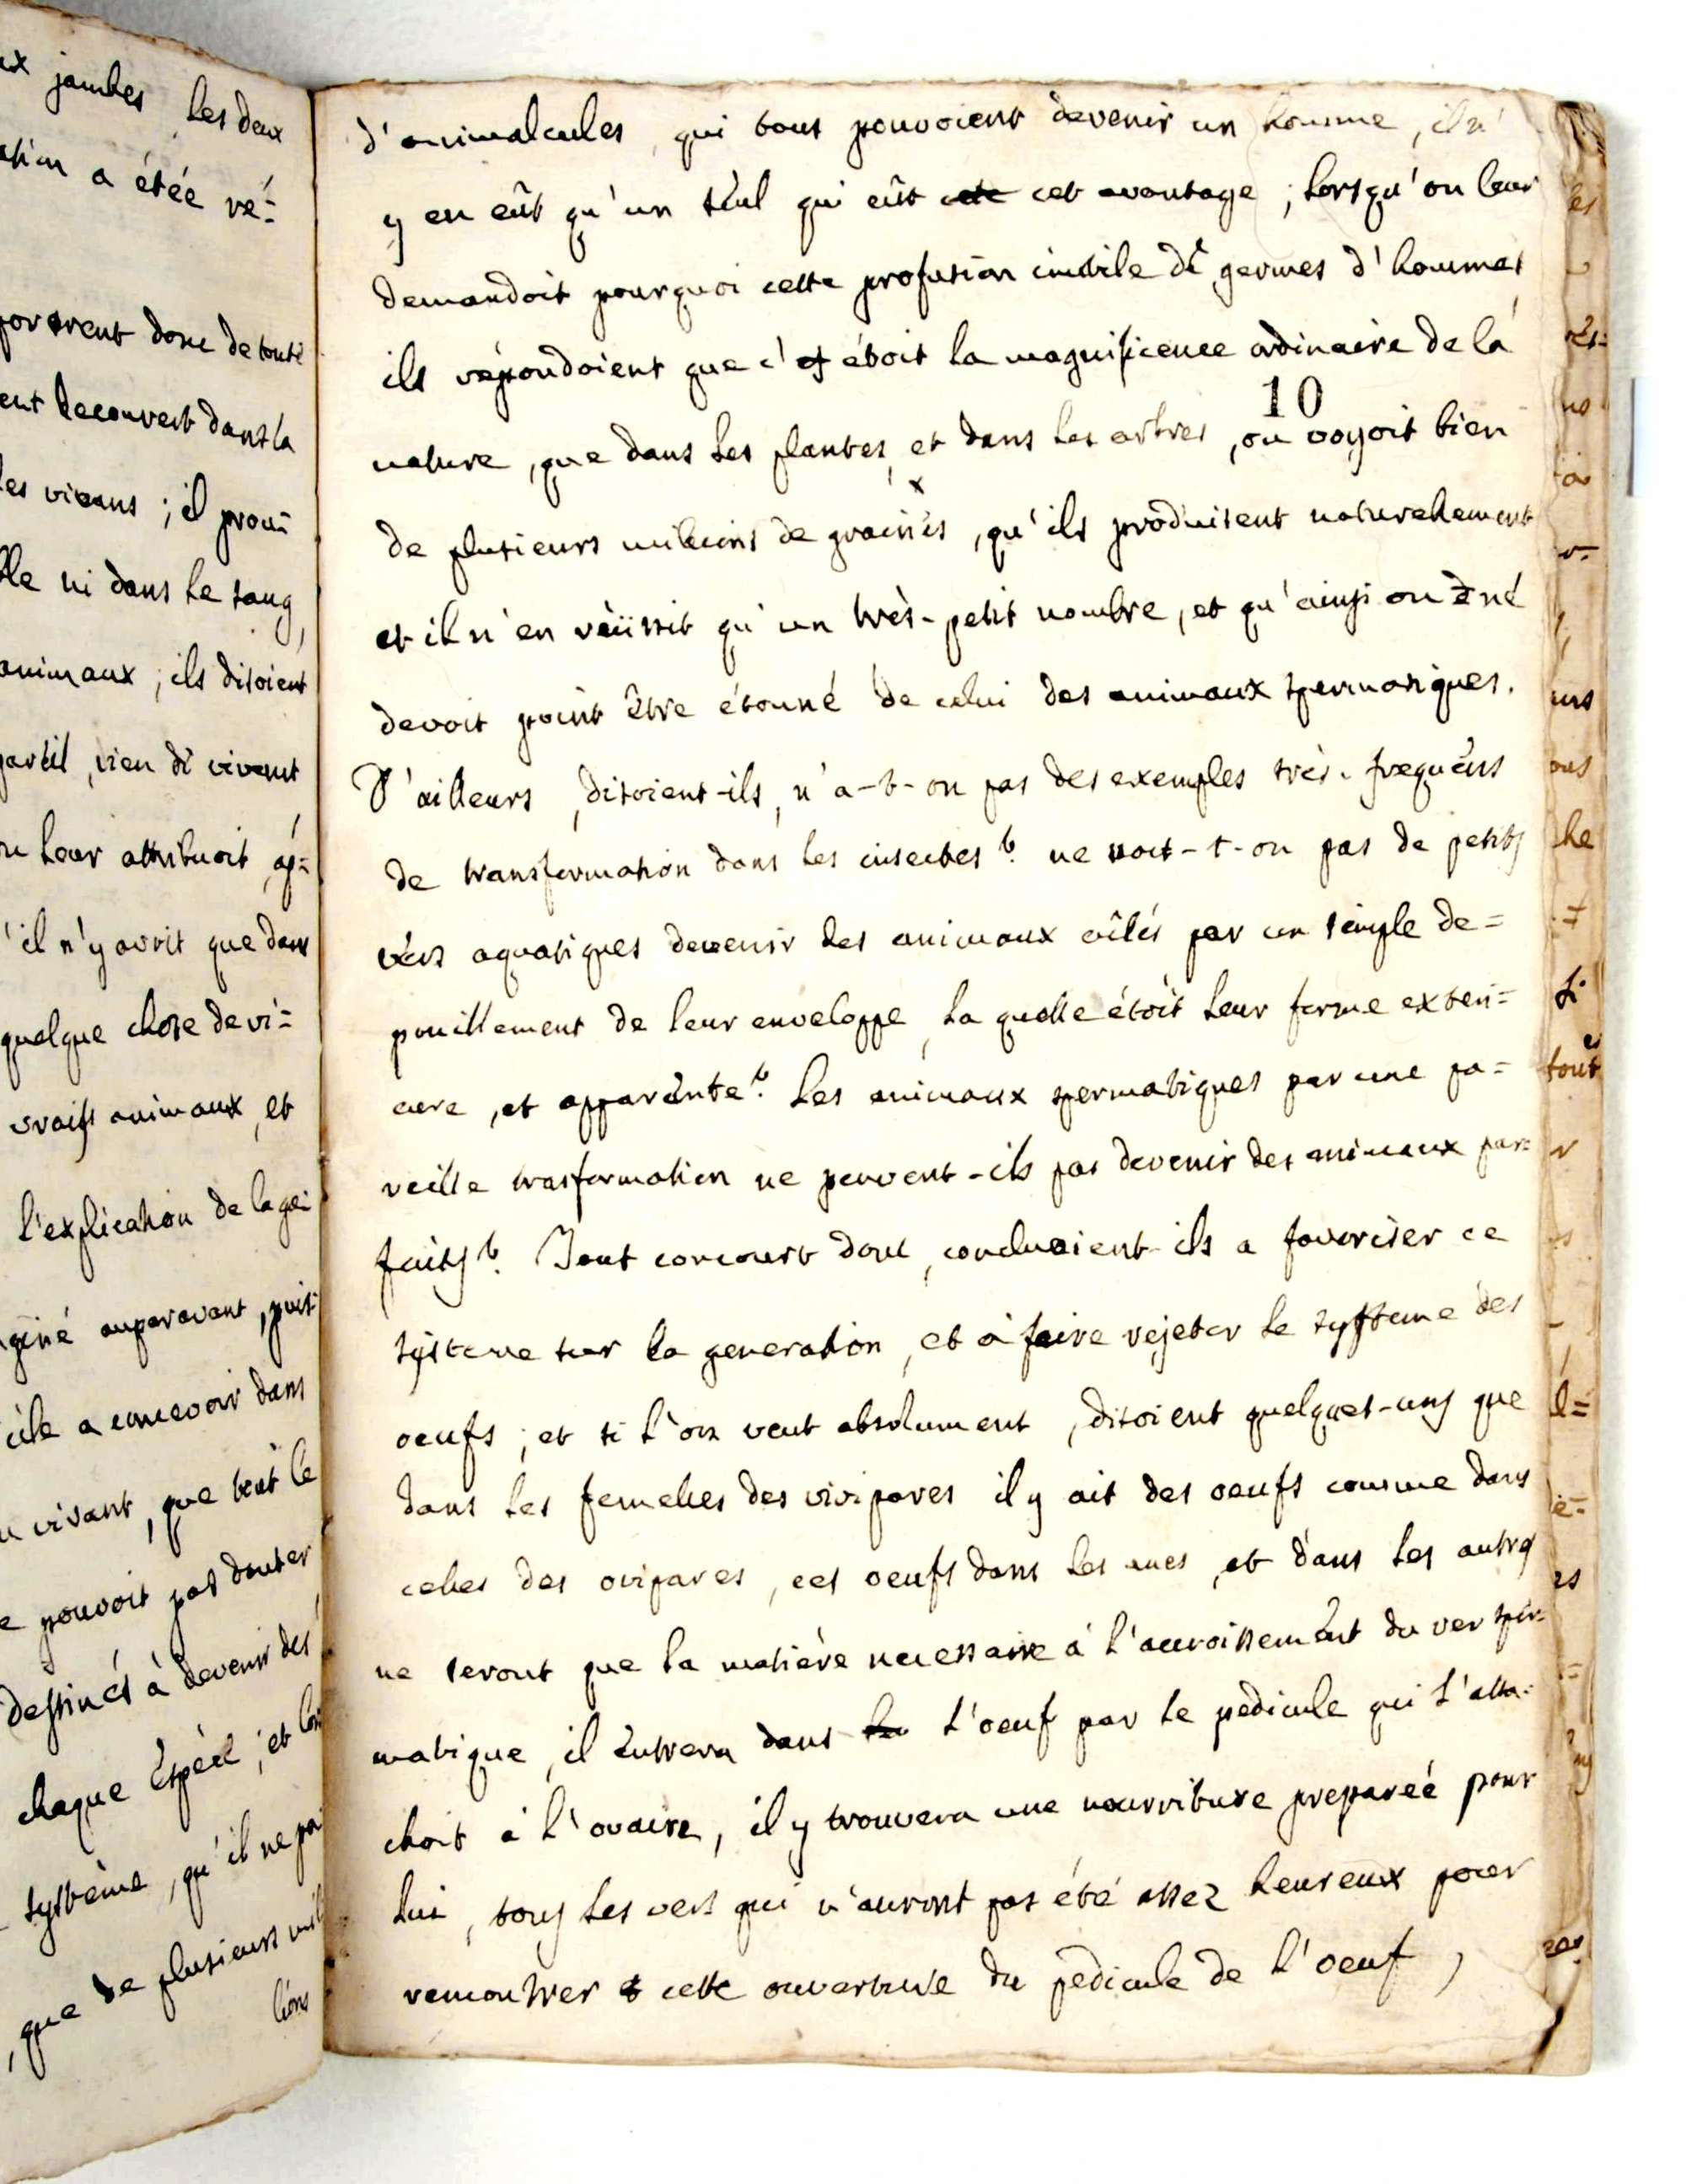 ux jambes les deux
ation a étée ré=
porterent donc de toute
ent decouvert dans la
les vivans ; il prou=
ble ni dans le sang,
animaux ; ils disoient
pareil, rien de vivent
on leur attribuoit, ap=
'il n'y avoit que dans
quelque chose de vi=
vraifs animaux, et
l'explication de la gé=
giné auparavant, puis=
cile a concevoir dans
u vivant, que tout le
e pouvoit pas douter
destinés à devenir des
chaque Espéce ; et lors
systeme, qu'il ne pa
, que de plusieurs mil
lions
d'animalcules, qui tous pouvoient devenir un homme, il n'
y en eût qu'un seul qui eût cet avantage ; lorsqu'on leur
demandoit pourquoi cette profusion inutile de germes d'hommes
ils répondoient que c'étoit la magnificence ordinaire de la
10
nature, que dans les plantes, et dans les arbres, on voyoit bien
de plusieurs millions de graines, qu'ils produisent naturellement
et il n'en réüssit qu'un très-petit nombre, et qu'ainsi on né
devoit point être étonné de celui des animaux spermatiques.
D'ailleurs, disoient-ils, n'a-t-on pas des exemples très-frequéns
de transformation dans les insectes ? ne voit-t-on pas de petits
vers aquatiques devenir des animaux aîlés par un simple de=
pouillement de leur enveloppe, la quelle étoit leur forme exteri=
eure, et apparente ? les animaux spermatiques par une pa=
reille trasformation ne peuvent-ils pas devenir des animaux par=
faits ? Tout concourt donc, concluoient-ils a favoriser ce
systeme sur la generation, et à faire rejeter le systeme des
oeufs ; et si l'on veut absolument, disoient quelques-uns que
dans les femelles des vivipares il y ait des oeufs comme dans
celles des ovipares, ces oeufs dans les unes, et dans les autres
ne seront que la matière necessaire á l'accroissement du ver sper=
matique, il entrera dans l'oeuf par le pedicule qui l'atta=
choit à l'ovaire, il y trouvera une nourriture preparéé pour
lui, tous les vers qui n'auront pas été assez heureux pour
rencontrer cette ouverture du pedicule de l'oeuf,